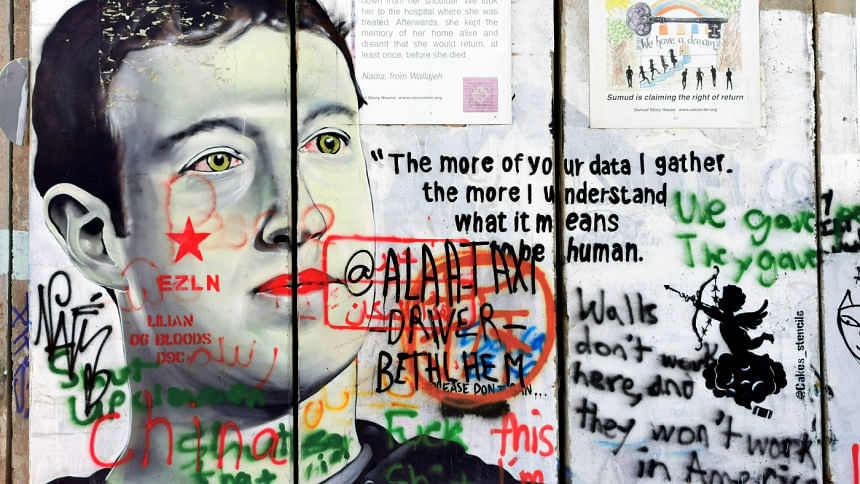 down from her shoulder. We took
her to the hospital where she was
treated. Afterwards, she kept the
memory of her home alive and
dreamt that she would return, at
least once, before she died.
Nadia, from Wallajeh
Story House, www.aeicenter.org
We have a dream
Sumud is claiming the right of return
Sumud Story House www.aeicenter.org
"The more of your data I gather.
the more I understand
what it means
to be human.
We gave
They gave
EZLN
LILIAN
OG BLOODS
DSC
@ALAA-TAXI
-DRIVER-
BETHLIHEM
PLEASE DON'T
Walls
don't work
here, and
they won't work
in America
@Cakes_stencils
China
Fuck
this
I'm
Shit